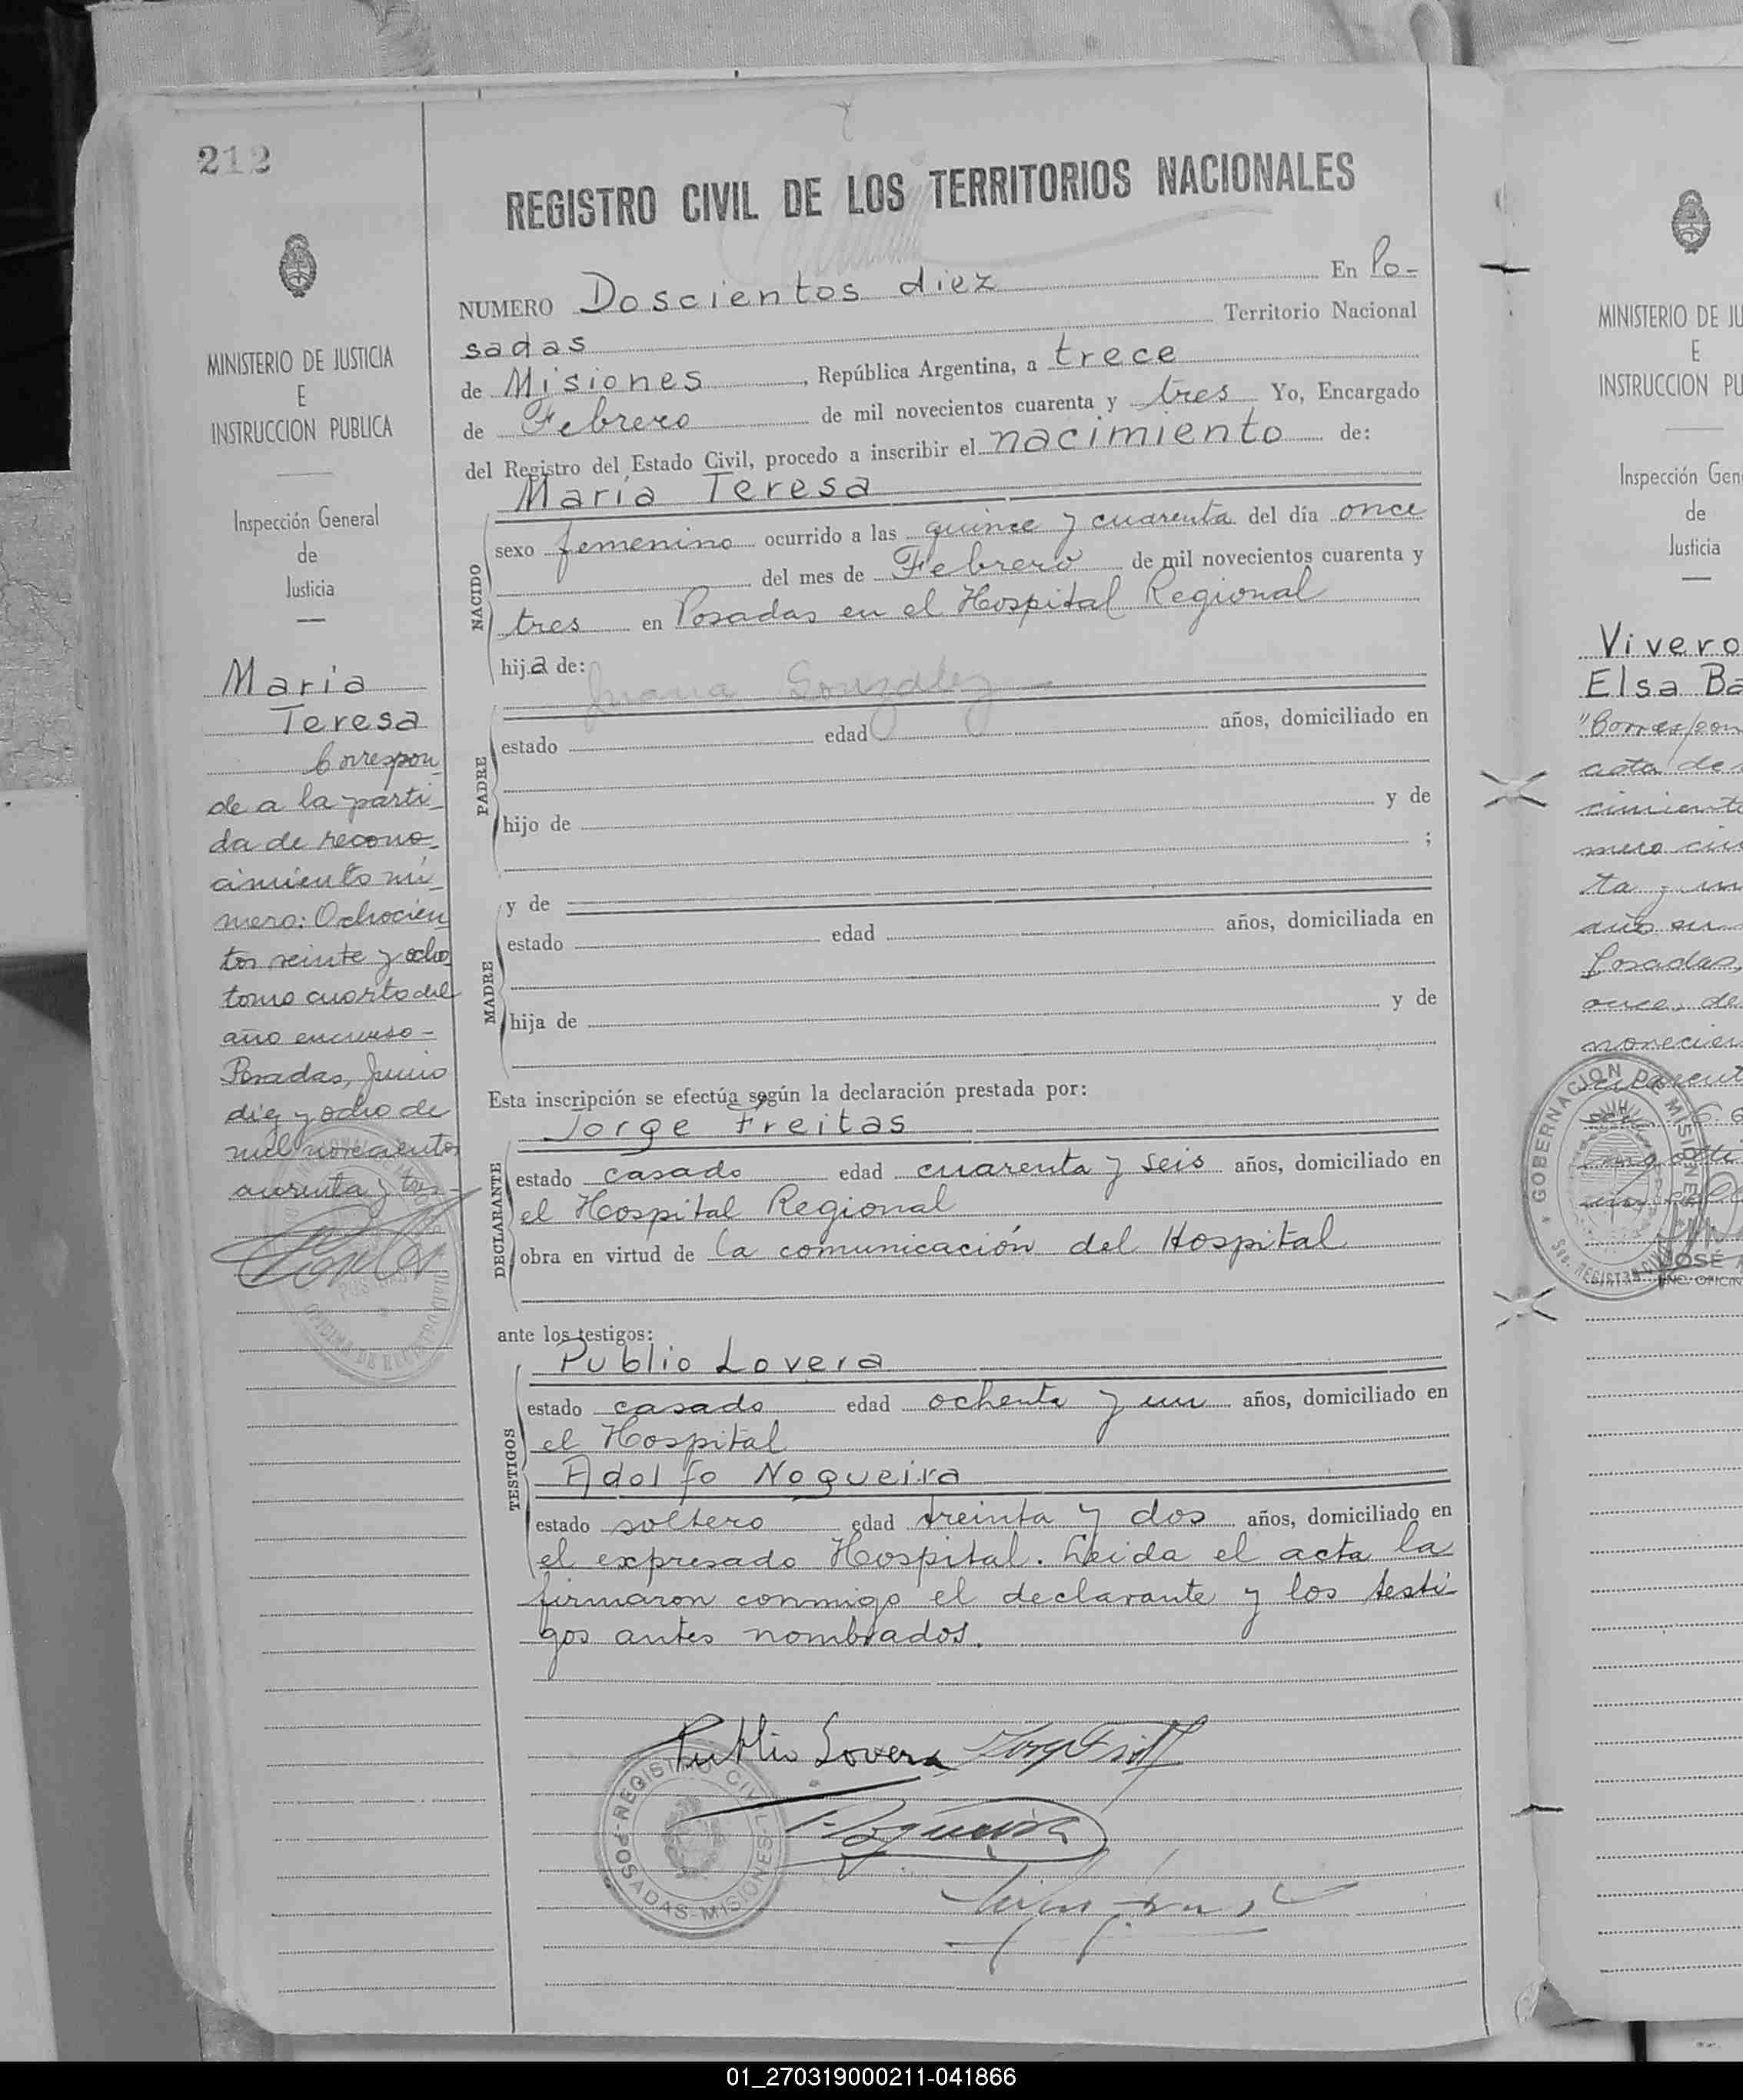 212
REGISTRO CIVIL DE LOS TERRITORIOS NACIONALES
NUMERO Doscientos diez En Po-
sadas Territorio Nacional
de Misiones, República Argentina, a trece
de Febrero de mil novecientos cuarenta y tres Yo, Encargado
del Registro del Estado Civil, procedo a inscribir el nacimiento de:
María Teresa
NACIDO
sexo femenino ocurrido a las quince y cuarenta del día once
del mes de Febrero de mil novecientos cuarenta y
tres en Posadas en el Hospital Regional
hija de:
Juana Gonzalez
PADRE
estado edad años, domiciliado en
hijo de y de
;
y de
MADRE
estado edad años, domiciliada en
hija de y de
Esta inscripción se efectúa según la declaración prestada por:
Jorge Freitas
DECLARANTE
estado casado edad cuarenta y seis años, domiciliado en
el Hospital Regional
obra en virtud de la comunicación del Hospital
ante los testigos:
Publio Lovera
TESTIGOS
estado casado edad ochenta y un años, domiciliado en
el Hospital
Adolfo Nogueira
estado soltero edad treinta y dos años, domiciliado en
el expresado Hospital. Leida el acta la
firmaron conmigo el declarante y los testi-
gos antes nombrados.
Publio Lovera
REGISTRO CIVIL POSADAS-MISIONES
MINISTERIO DE JUSTICIA
E
INSTRUCCION PUBLICA
Inspección General
de
Justicia
María
Teresa
Correspon-
de a la parti-
da de recono-
cimiento nú-
mero: Ochocien
tos veinte y ocho
tomo cuarto del
año en curso-
Posadas, Junio
diez y ocho de
mil novecientos
cuarenta y tres-
MINISTERIO DE JU
E
INSTRUCCION PU
Inspección Gen
de
Justicia
Vivero
Elsa Ba
"Correspon
acta de
cimiento
mero cin
ta y un
año en
Posadas,
once de
novecien
GOBERNACION DE MISIONES
JOSÉ
ENC. OFICIN
01_270319000211-041866